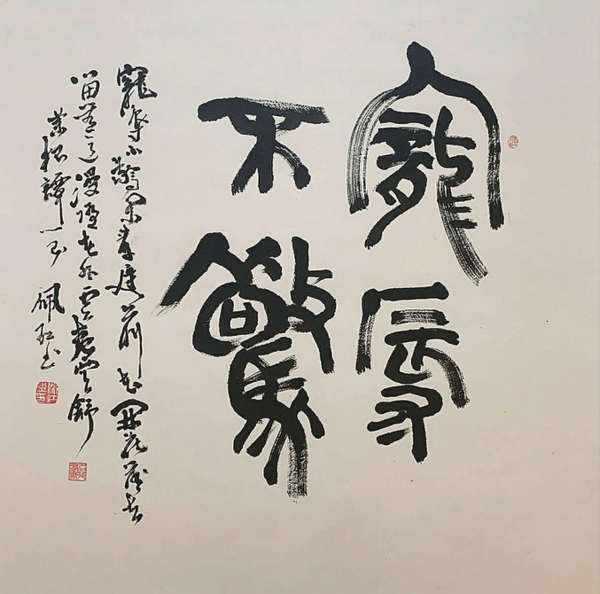 寵辱
不驚
寵辱不驚閑看庭前花開花落去
留無意漫隨天外雲卷雲舒
菜根譚一 佩紅書